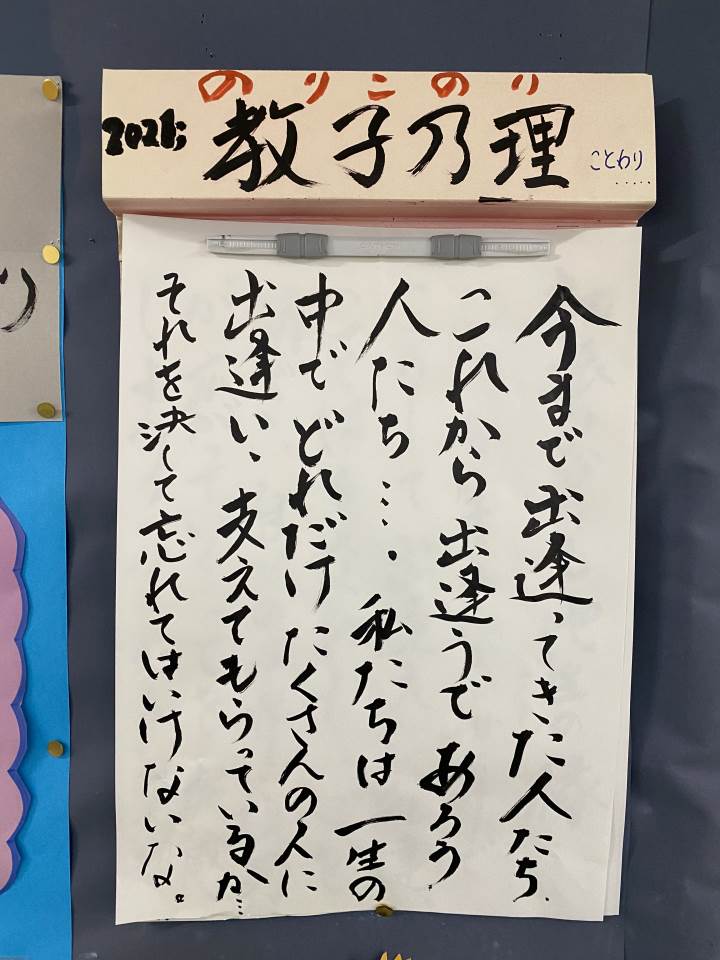 のりこのり
2021;
教子乃理
ことわり
.....
今まで出逢ってきた人たち、
これから出逢うであろう
人たち…。私たちは一生の
中でどれだけたくさんの人に
出逢い、支えてもらっているか…
それを決して忘れてはいけないな。
り